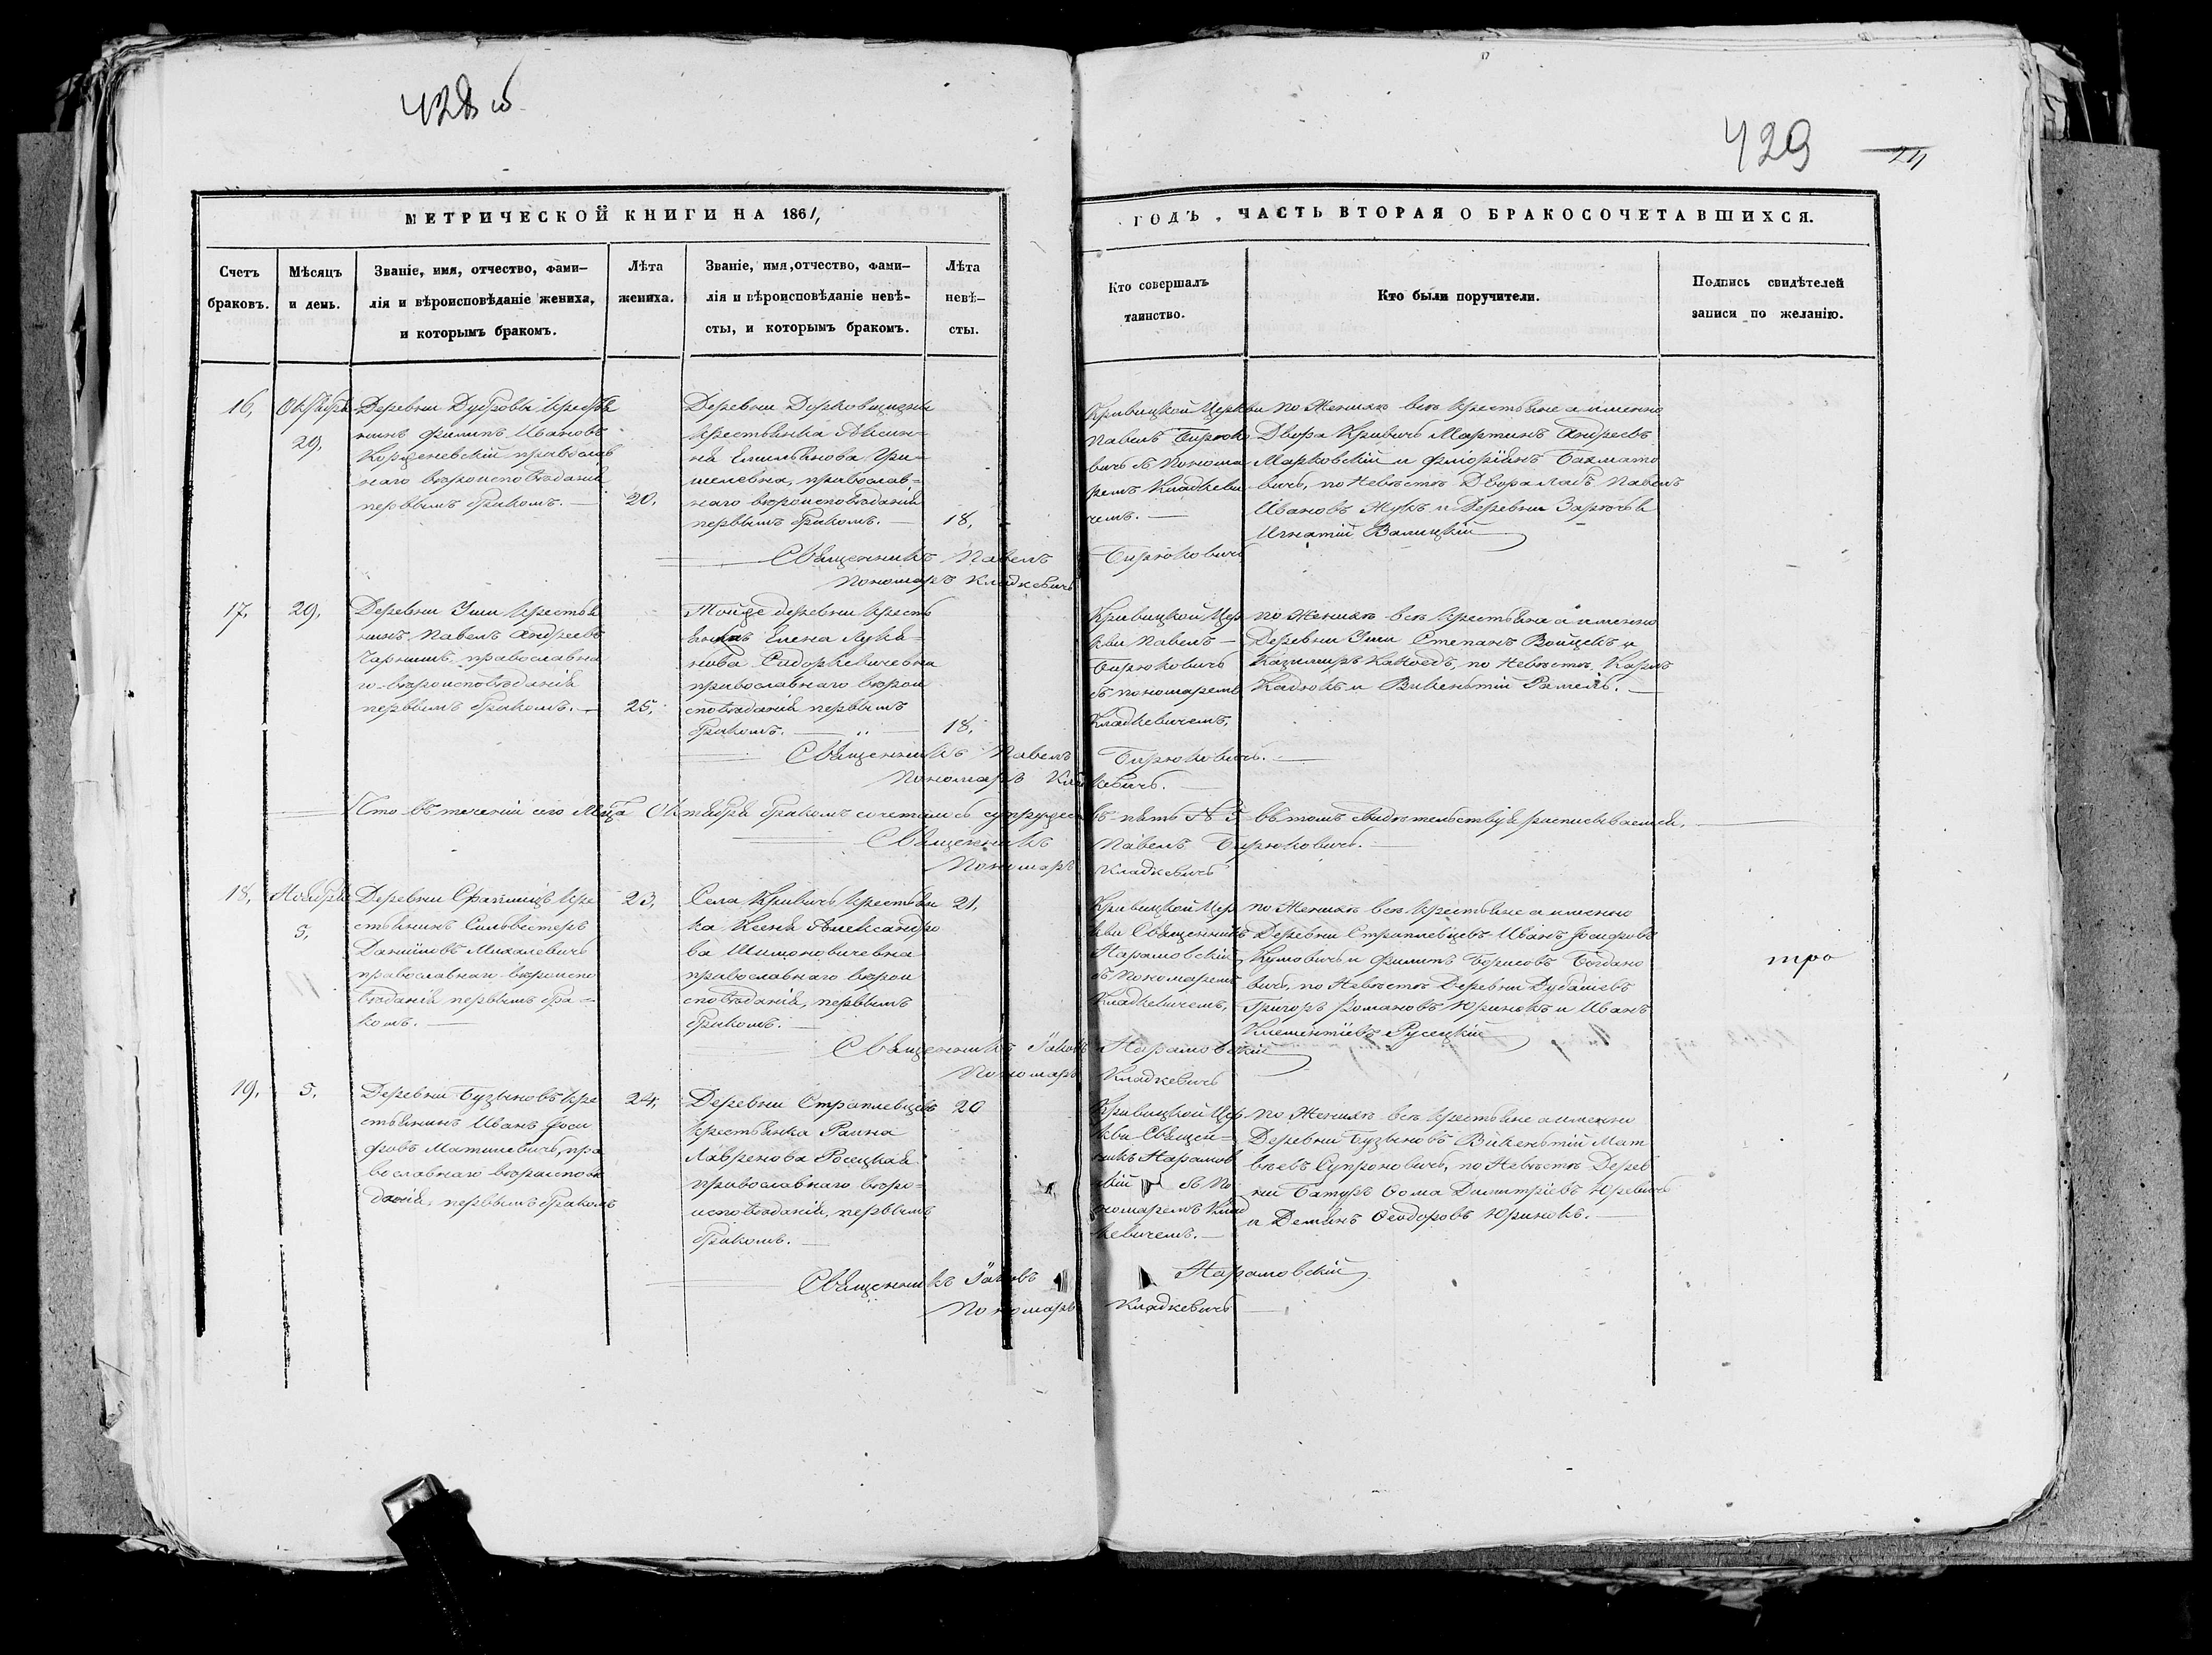 428 об
429
МЕТРИЧЕСКОЙ КНИГИ НА 1861,
ГОДЪ, ЧАСТЬ ВТОРАЯ О БРАКОСОЧЕТАВШИХСЯ.
Счетъ браковъ.
Мѣсяцъ и день.
Званіе, имя, отчество, фами-
лія и вѣроисповѣданіе жениха,
и которымъ бракомъ.
Лѣта
жениха.
Званіе, имя, отчество, фами-
лія и вѣроисповѣданіе невѣ-
сты, и которымъ бракомъ.
Лѣта
невѣ-
сты.
Кто совершалъ
таинство.
Кто были поручители.
Подпись свидѣтелей
записи по желанію.
16,
Октября
29,
Деревни Дубровы крестья
нинъ Филипъ Ивановъ
православ
наго вѣроисповѣданія
первымъ бракомъ.
20.
Деревни
крестьянка Аксин=
ья Емильянова
православ=
наго вѣроисповѣданія
первымъ бракомъ.
18,
Кривицкой Церкви
Павелъ Бирюко
вичъ съ Понома
ремъ Кладкеви
чемъ.
по Женихѣ всѣ крестьяне а именно
Двора Кривичъ Мартинъ Андреевъ
Марковскій и Флоріянъ Бахмато
вичъ, по Невѣстѣ Двора Ладъ Павелъ
Ивановъ Жукъ и Деревни
Игнатій Валицкій
Священникъ Павелъ Бирюковичъ
Пономарь Кладкевичъ
17,
29,
Деревни Уши крестья
нинъ Павелъ Андреевъ
православна
го вѣроисповѣданія
первымъ бракомъ.
25,
Тойже деревни кресть
янка Елена Лукья=
нова Сидоркевичевна
православнаго вѣрои
сповѣданія первымъ
бракомъ.
18,
Кривицкой Цер
кви Павелъ
Бирюковичъ
съ пономаремъ
Кладкевичемъ,
по Женихѣ всѣ крестьяне а именно
Деревни Уши Степанъ Войцехъ и
Казимиръ, по Невѣстѣ, Карлъ
и Викентій
Священникъ Павелъ Бирюковичъ.
Пономарь Кладкевичъ.
Что въ теченіи сего Мѣца Октября бракомъ сочетались супружествъ пять № 5 въ томъ свидѣтельствуя расписываемся.
Священникъ Павелъ Бирюковичъ.
Пономарь Кладкевичъ
18,
Ноября
5,
Деревни кре
стьянинъ Сильвестеръ
Даниловъ Михалевичъ
православнаго вѣроиспо
вѣданія первымъ бра=
комъ.
23,
Села Кривичъ крестьян
ка Ксеня Александро
ва Шимоновичевна
православнаго вѣрои
сповѣданія, первымъ
бракомъ.
21,
Кривицкой Цер
кви Священникъ
Нарамовскій
съ Пономаремъ
Кладкевичемъ,
по Женихѣ всѣ крестьяне а именно
Деревни Страплевцевъ Иванъ Іосифовъ
и Филипъ Борисовъ Богдано
вичъ, по Невѣстѣ Деревни
Григоръ Романовъ Юринокъ и Иванъ
Клементіевъ Русецкій
тро
Священникъ Іаковъ Нарамовскій
Пономарь Кладкевичъ
19,
5,
Деревни Бузыновъ кре
стьянинъ Иванъ Іоси
фовъ Матиевичъ, пра
вославнаго вѣроисповѣ
данія, первымъ бракомъ
24,
Деревни Страплевцевъ
крестьянка Раина
Лавренова Росецкая
православнаго вѣро=
исповѣданія, первымъ
бракомъ.
20
Кривицкой Цер
кви Священ=
никъ Нарамов
скій съ По
номаремъ Клад
кевичемъ.
по Женихѣ всѣ крестьяне а именно
Деревни Бузыновъ Викентій Мат
вѣевъ Супроновичъ, по Невѣстѣ Дерев
ни Батуръ Фома Димитріевъ Юревичъ
и Демьянъ Феодоровъ Юринокъ.
Священникъ Іаковъ Нарамовскій
Пономарь Кладкевичъ